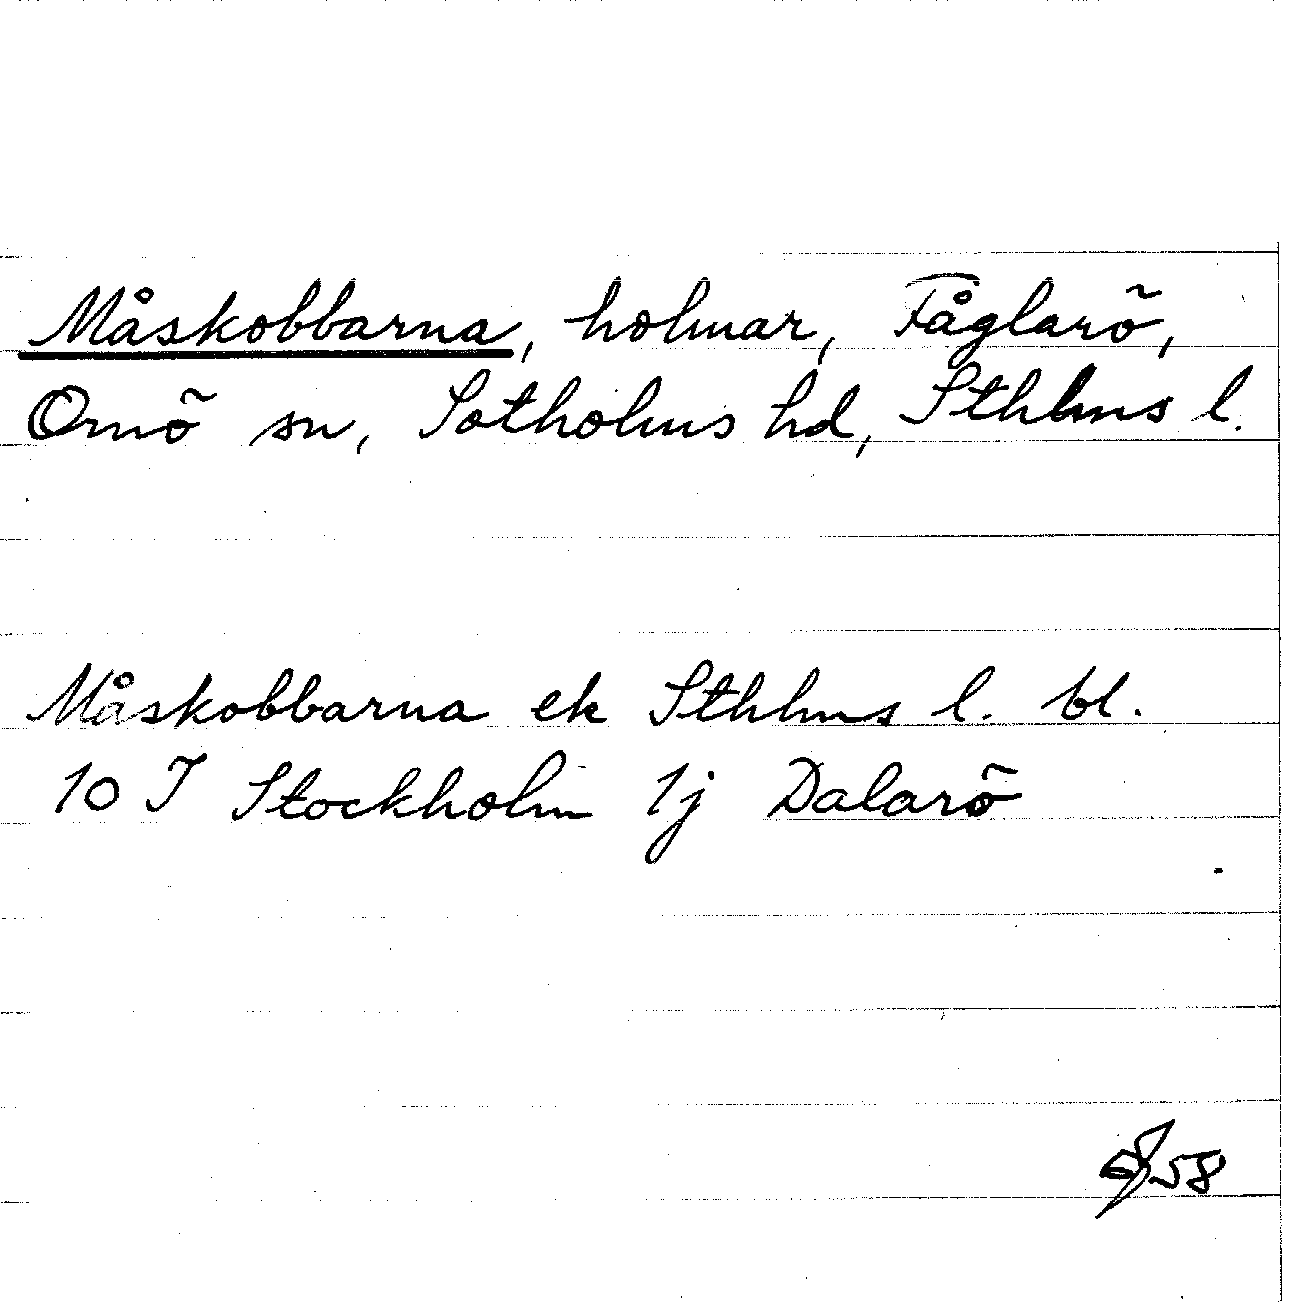 Måskobbarna, holmar, Fåglarö,
Ornö sn, Sotholms hd, Sthlms l.
Måskobbarna ek Sthlms l. bl.
10 I Stockholm 1j Dalarö
58